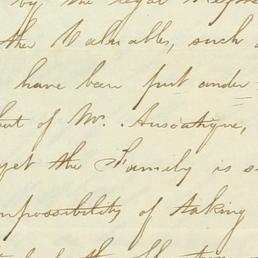 by the legal
other Valuable, such
have been put under
but of Mr.
yet the Family is
impossibility of taking